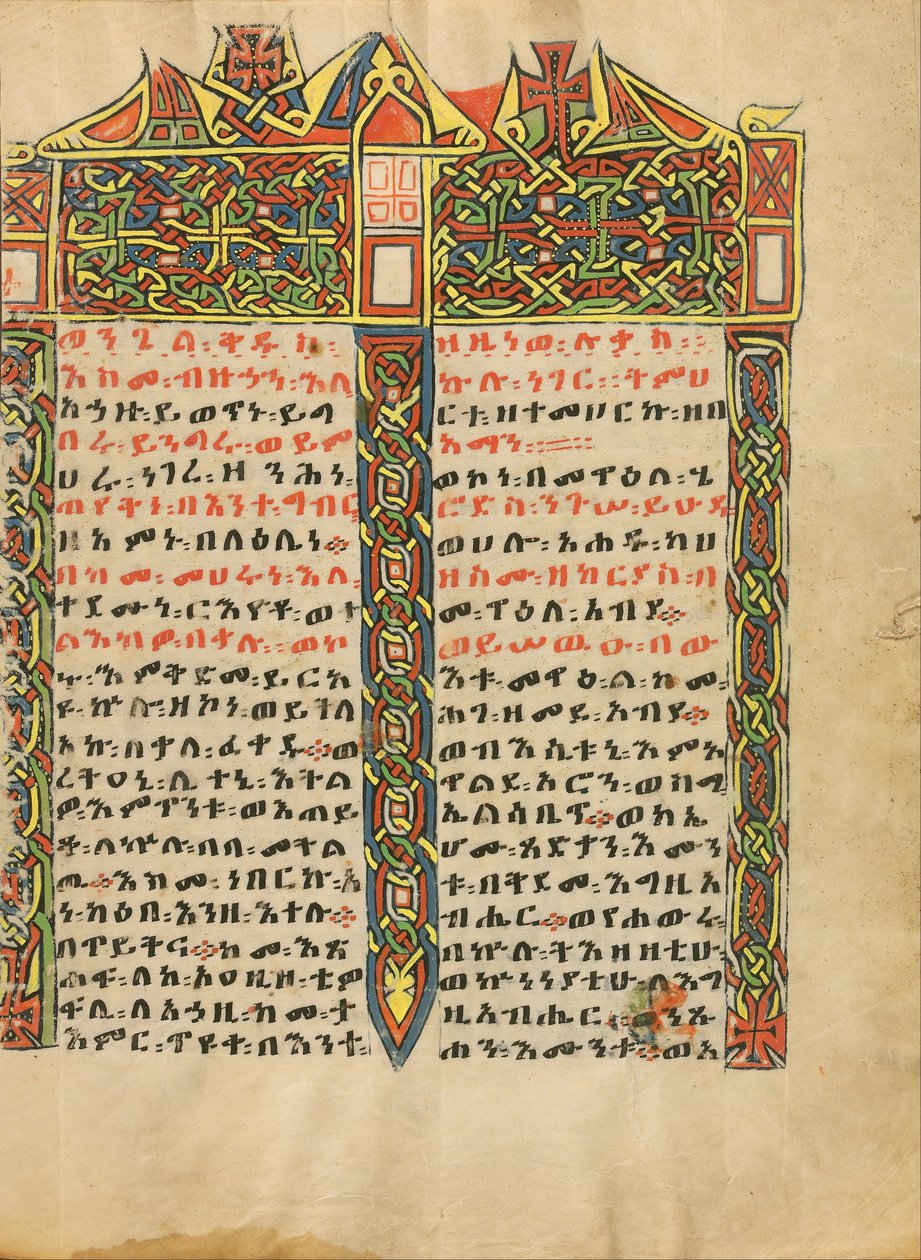 ወንጌል፡ቅዱስ፡
እስመ፡ብዙኃን፡እለ
አኃዙ፡ይወጥኑ፡ይግ
በሩ፡ይንግሩ፡ወይም
ሀሩ፡ነገረ፡ዘ ንሕነ
ጠየቅነ፡በእንተ፡ግብር
ዘአምኑ፡በላዕሌነ።
በከመ፡መሀሩነ፡እለ፡
ቀደሙነ፡ርእዮቶ፡ወተ
ልእክዎ፡በቃሉ፡፡ወከ
ኑ፡እምቅድመ፡ይርአ
ዩ፡ኵሎ፡ዘኮነ፡ወይተለ
አኩ፡በቃለ፡ፈቀዱ።ወ
ረትዐኒ፡ሊተኒ፡እትል
ዎ፡እምጥንቱ፡ወእጠይ
ቆ፡ለኵሉ፡በበ፡መትል
ዉ።እስመ፡ነበርኩ፡እ
ነ፡ከዕበ፡እንዘ፡እተሉ።
በጥይቅና።ከመ፡እጽ
ሐፍ፡ለከ፡አዐዚዝ፡ቴዎ
ፍሊ፡ለአኃዚ፡ከመ፡ታ
እምር፡ጥዩቀ፡በእንተ፡
ዘዜነወ፡ሉቃስ፡፡
ኵሉ፡ነገር፡፡ትምህ
ርቱ፡ዘተመሀርኩ፡ዘበ
አማን፡፡
ወኮነ፡በመዋዕለ፡ሄ
ሮድስ፡ንጉሠ፡ይሁዳ
ወሀሎ፡አሐዱ፡ካህ
ዘስሙ፡ዘካርያስ፡በ
መዋዕለ፡አብያ።
ወይሠውዑ፡በው
እቱ፡መዋዕል፡ከመ፡
ሕገ፡ዘመደ፡አብያ።
ወብእሲቱኒ፡እምአ
ዋልደ፡አሮን፡ወስማ
ኤልሳቤጥ።ወክኤ
ሆሙ፡ጻድቃን፡እሙን
ቱ፡በቅደመ፡እግዚአ
ብሔር።ወየሐውሩ
በኵሉ፡ትእዘዚቲሁ
ወኵነኔያቲሁ፡ለእግ
ዚአብሔር፡ ንጹ
ሐን፡እሙንቱ።ወአ